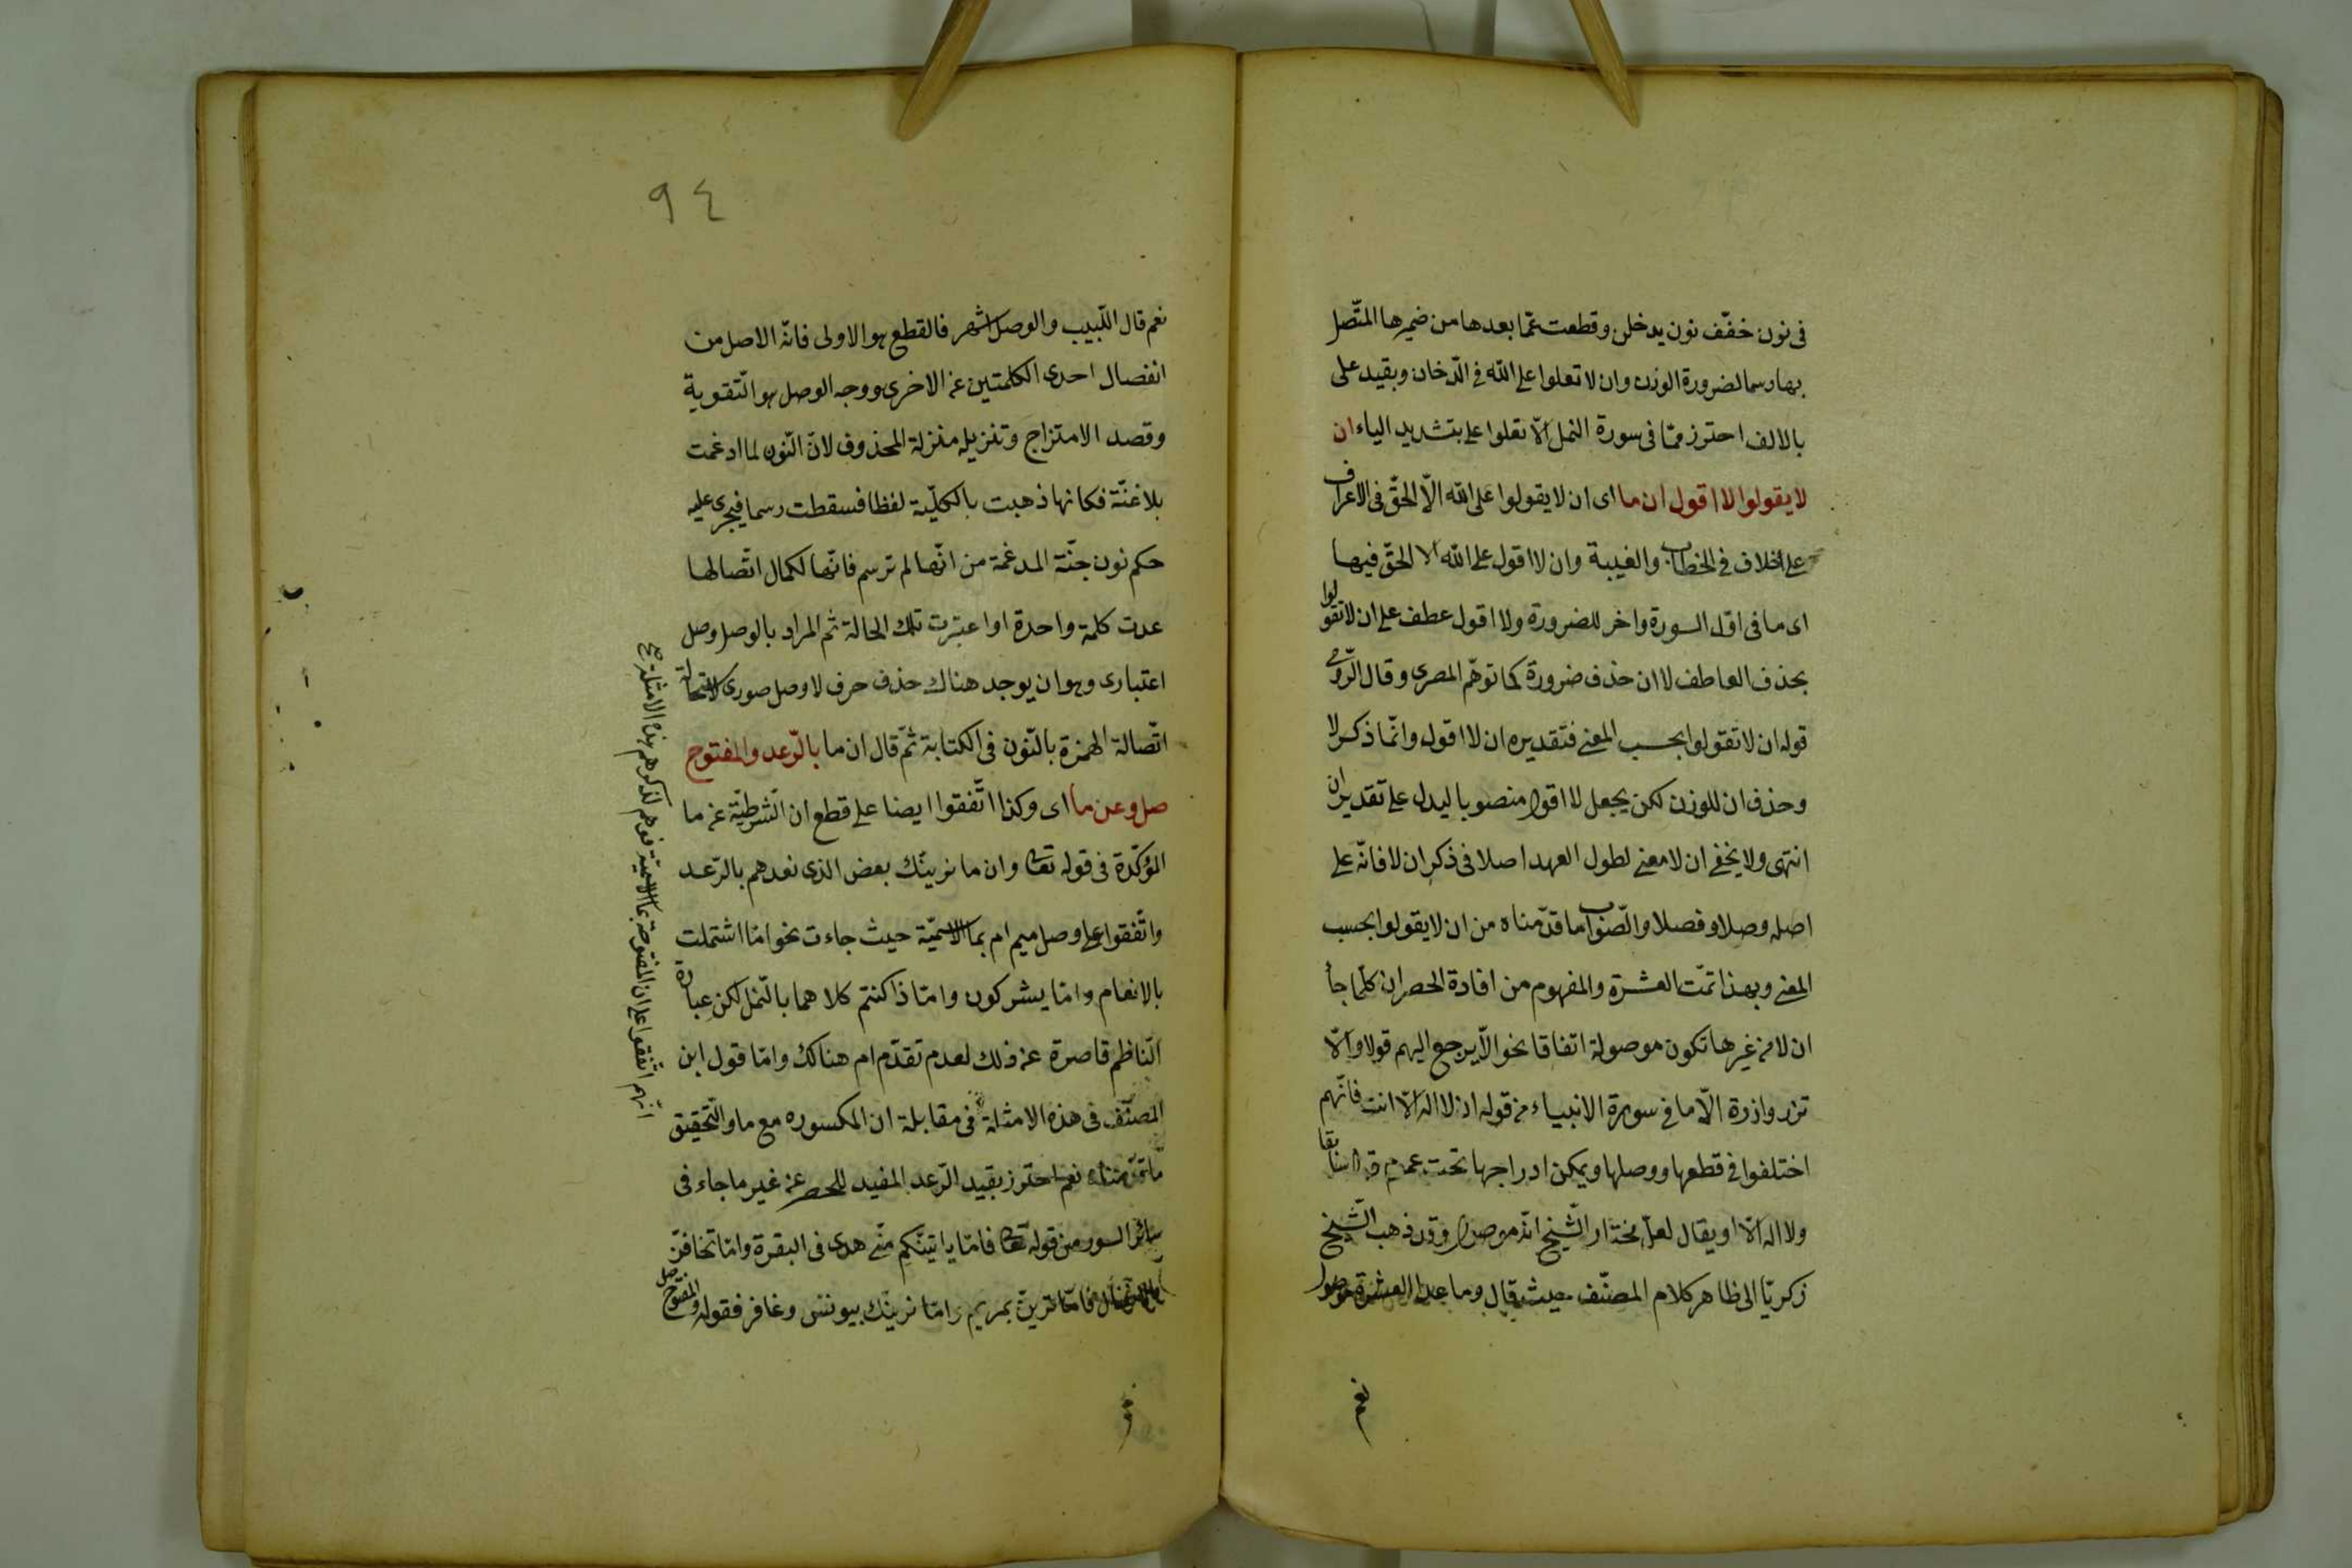 فى نون خفّف نون يدخلن وقطعت عمّا بعدها من ضميرها المتّصل
بها رسما لضرورة الوزن وان لا تعلوا على الله فى الدّخان وبقيد على
بالالف احترز ممّا فى سورة النمل الّا تعلوا علىّ بتشديد الياء ان
لا يقولوا لا اقول ان ما اى ان لا يقولوا على الله الّا الحقّ فى الاعراف
على خلاف فى الخطاب والغيبة وان لا اقول على الله الا الحقّ فيها
اى ما فى اوّل السورة واخر للضرورة ولا اقول عطف على ان لا تقولوا
بحذف العاطف لا ان حذف ضرورة كما توهّم المصرى وقال الرّومى
قوله ان لا تقولوا بحسب المعنى فتقديره ان لا اقول وانّما ذكر لا
وحذف ان للوزن لكن يجعل لا اقول منصوبا ليدل على تقدير ان
انتهى ولا يخفى ان لا معنى لطول العهد اصلا فى ذكر ان لا فانّه على
اصله وصلا وفصلا والصّواب ما قدّمناه من ان لا يقولوا بحسب
المعنى وبهذا تمّت العشرة والمفهوم من افادة الحصر ان كلّما جاء
ان لا من غيرها تكون موصولة اتفاقا نحو الّا يرجع اليهم قولا والّا
تزر وازرة الّا ما فى سورة الانبياء من قوله ان لا اله الّا انت فانّهم
اختلفوا فى قطعها ووصلها ويمكن ادراجها تحت عموم قوله سابقا
ولا اله الّا او يقال لعلّ مختار الشّيخ انّه موصول وقد ذهب الشّيخ
زكريّا الى ظاهر كلام المصنّف حيث قال وما عدا العشرة موصول
نعم
٩٤
نعم قال اللّبيب والوصل اشهر فالقطع هو الاولى فانّه الاصل من
انفصال احدى الكلمتين عن الاخرى ووجه الوصل هو التّقوية
وقصد الامتزاج وتنزيله منزلة المحذوف لانّ النّون لما ادغمت
بلا غنّة فكانها ذهبت بالكلّية لفظا فسقطت رسما فيجرى عليه
حكم نون جنّة المدغمة من انّها لم ترسم فانّها لكمال اتّصالها
عدت كلمة واحدة او اعتبرت تلك الحالة ثم المراد بالوصل وصل
اعتبارى وهو ان يوجد هناك حذف حرف لا وصل صورى لاستحالة
اتّصالة الهمزة بالنّون فى الكتابة ثمّ قال ان ما بالرّعد والمفتوح
صل وعن ما اى وكذا اتّفقوا ايضا على قطع ان الشّرطيّة عن ما
المؤكّدة فى قوله تعالى وان ما نرينّك بعض الذى نعدهم بالرّعد
واتّفقوا على وصل ميم ام بما الاسميّة حيث جاءت نحو امّا اشتملت
بالانعام وامّا يشركون وامّا ذا كنتم كلاهما بالنّمل لكن عبارة
النّاظم قاصرة عن ذلك لعدم تقدّم ام هنالك وامّا قول ابن
المصنّف فى هذه الامثلة فى مقابلة ان المكسوره مع ما والتّحقيق
ما قدّمناه نعم احترز بقيد الرّعد المفيد للحصر عن غير ما جاء فى
سائر السور من قوله تعالى فامّا ياتينّكم منّى هدى فى البقرة وامّا تخافنّ
بالانفال فامّا ترينّ بمريم وامّا نرينّك بيونس وغافر فقوله والمفتوح صل
انّهم اتّفقوا على ان المفتوحة بما الاسميّة فوهم لذكرهم هذه الامثلة صح